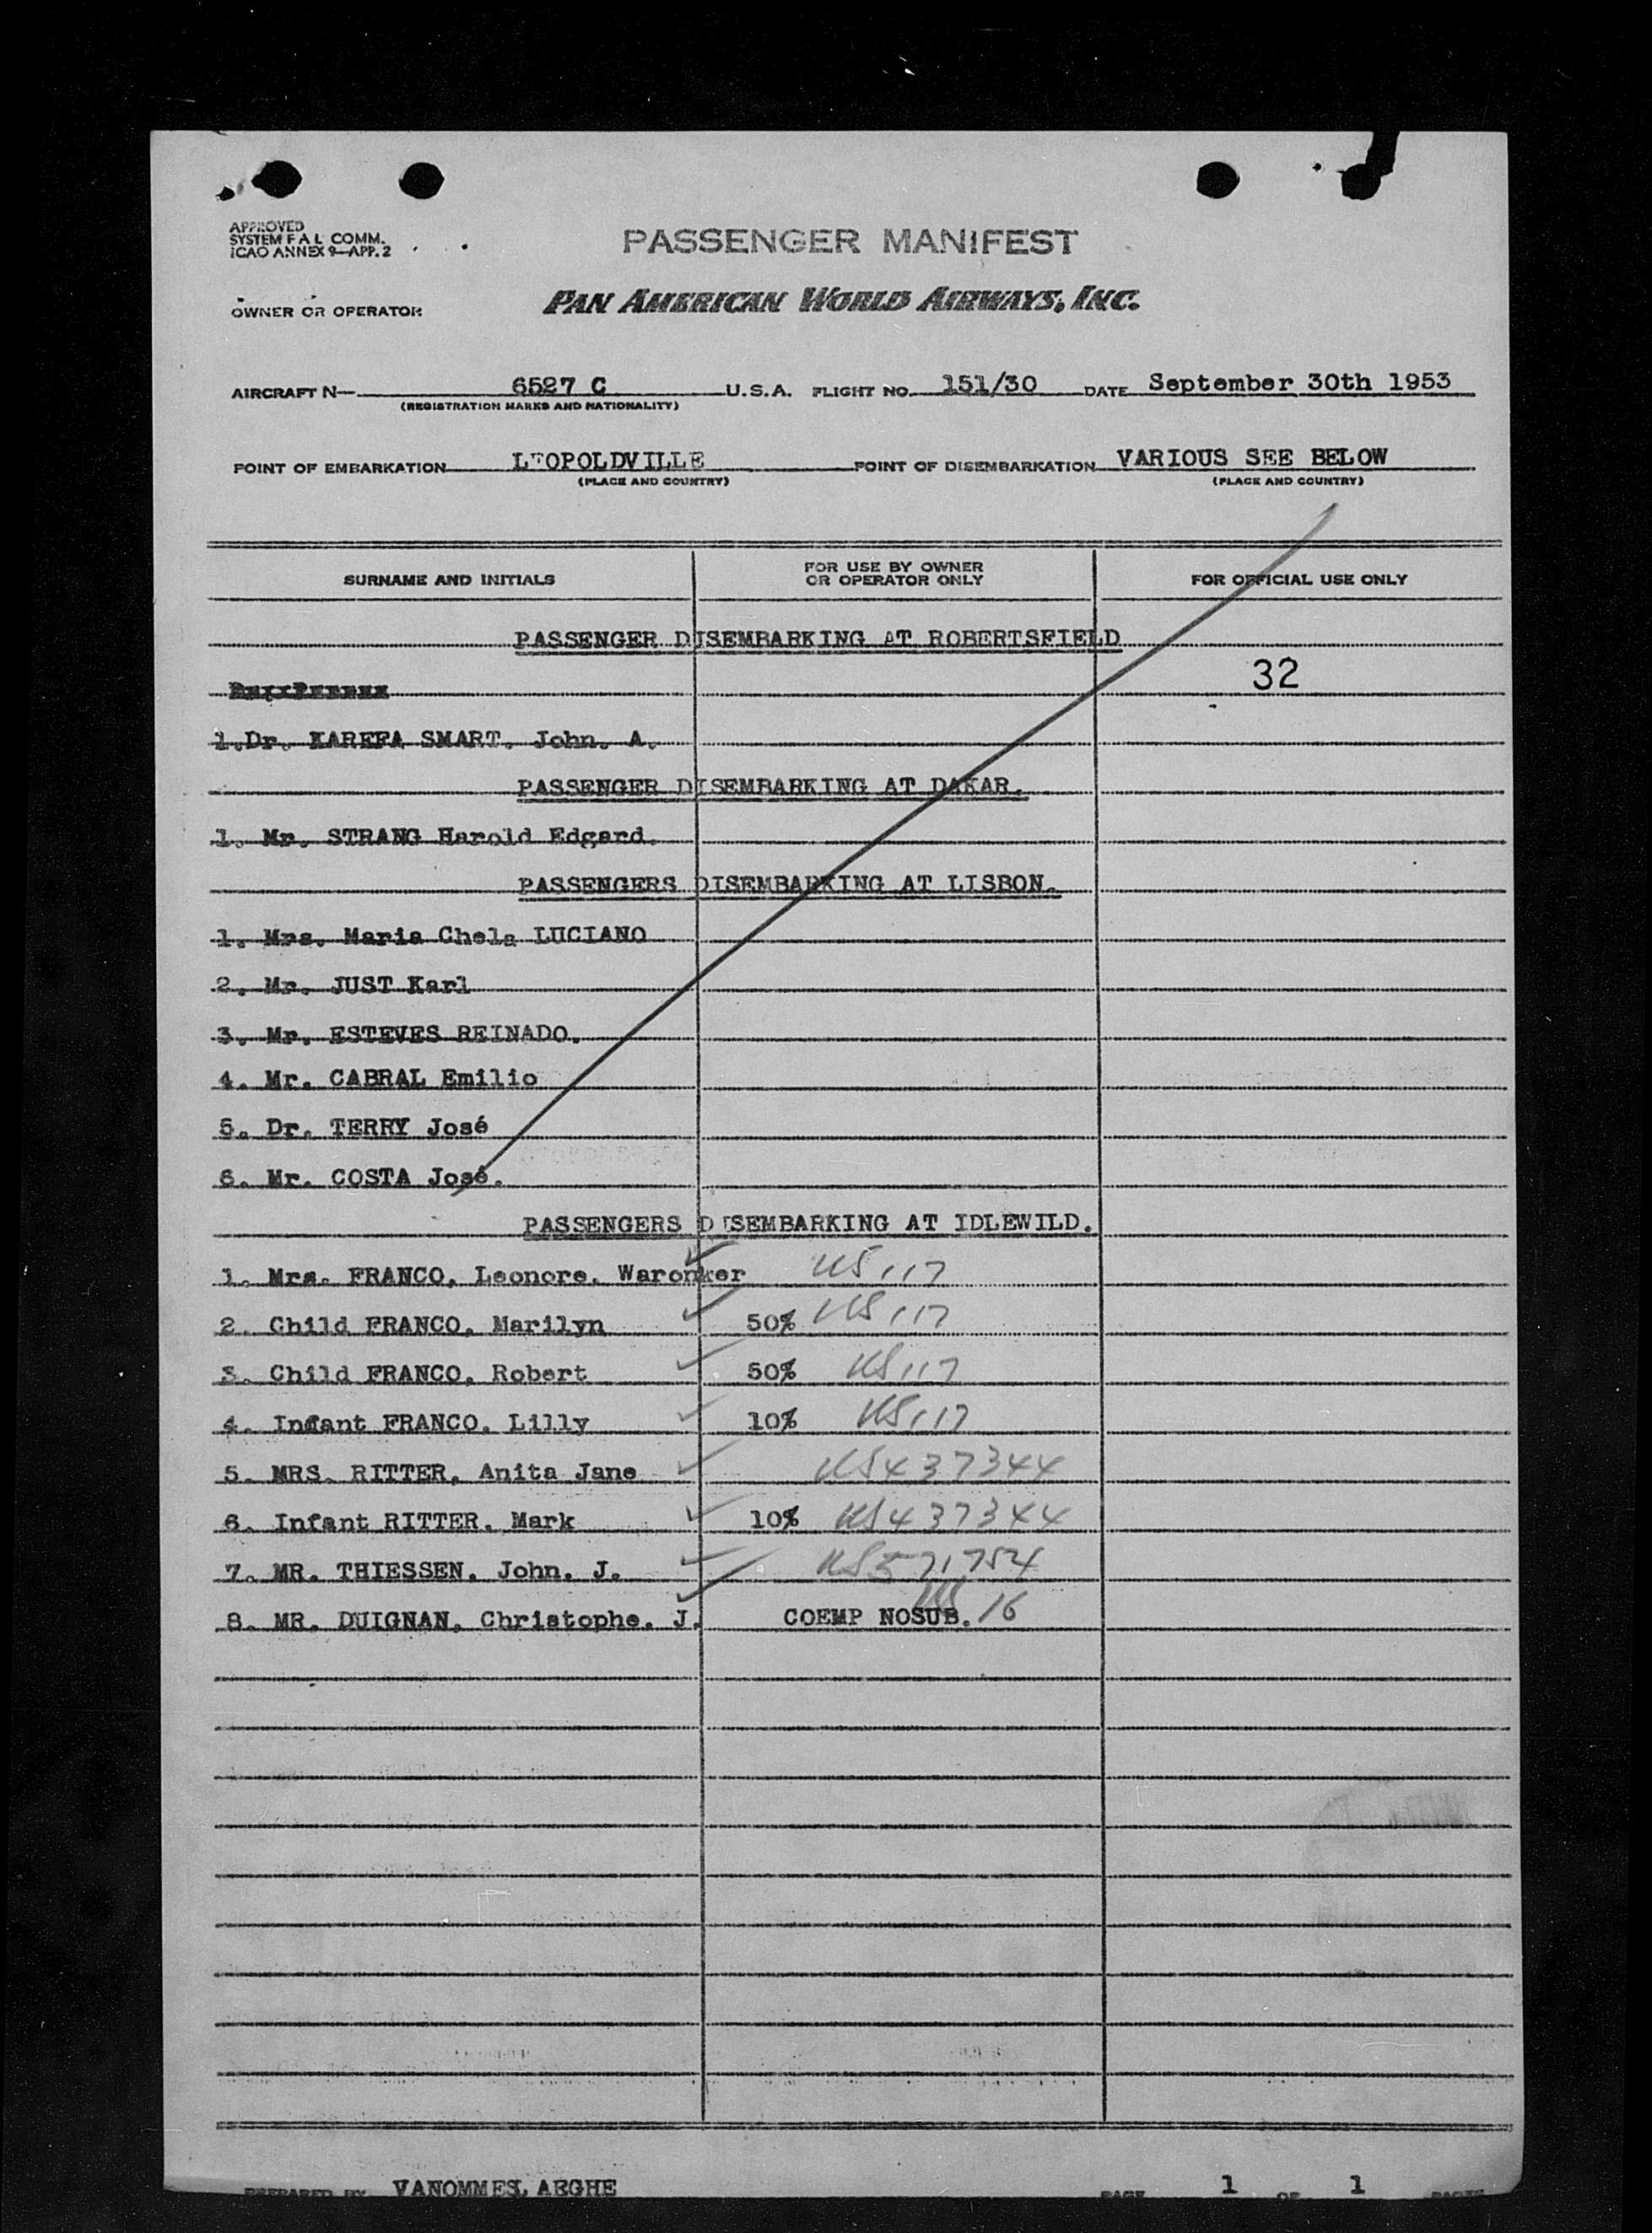 APPROVED
SYSTEM F A L COMM.
ICAO ANNEX 9—APP. 2
PASSENGER MANIFEST
OWNER OR OPERATOR PAN AMERICAN WORLD AIRWAYS, INC.
AIRCRAFT N— 6527 C U.S.A. FLIGHT NO. 151/30 DATE September 30th 1953
(REGISTRATION MARKS AND NATIONALITY)
POINT OF EMBARKATION LEOPOLDVILLE POINT OF DISEMBARKATION VARIOUS SEE BELOW
(PLACE AND COUNTRY) (PLACE AND COUNTRY)
SURNAME AND INITIALS FOR USE BY OWNER OR OPERATOR ONLY FOR OFFICIAL USE ONLY
PASSENGER DISEMBARKING AT ROBERTSFIELD
32
1.Dr. KAREFA SMART. John. A.
PASSENGER DISEMBARKING AT DAKAR.
1. Mr. STRANG Harold Edgard.
PASSENGERS DISEMBARKING AT LISBON.
1. Mrs. Maria Chela LUCIANO
2. Mr. JUST Karl
3. Mr. ESTEVES REINADO.
4. Mr. CABRAL Emilio
5. Dr. TERRY José
6. Mr. COSTA José.
PASSENGERS DISEMBARKING AT IDLEWILD.
1. Mrs. FRANCO, Leonore. Waronker US 117
2. Child FRANCO, Marilyn 50% US 117
3. Child FRANCO, Robert 50% US 117
4. Infant FRANCO. Lilly 10% US 117
5. MRS. RITTER, Anita Jane US 437344
6. Infant RITTER. Mark 10% US 437344
7. MR. THIESSEN. John. J. US 571754
8. MR. DUIGNAN, Christophe. J. COEMP NOSUB. US 16
PREPARED BY VANOMMESLAEGHE PAGE 1 OF 1 PAGES